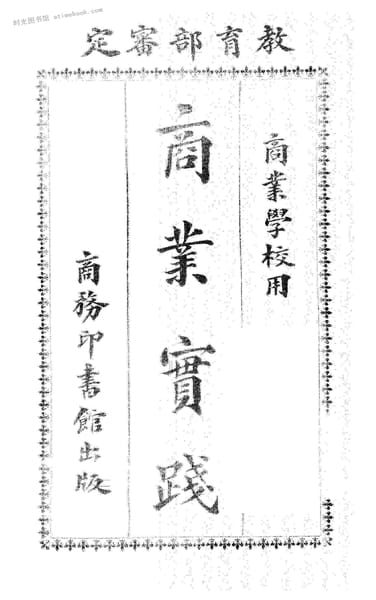 时光图书馆 atimebook.com
教育部審定
商業學校用
商業實踐
商務印書館出版